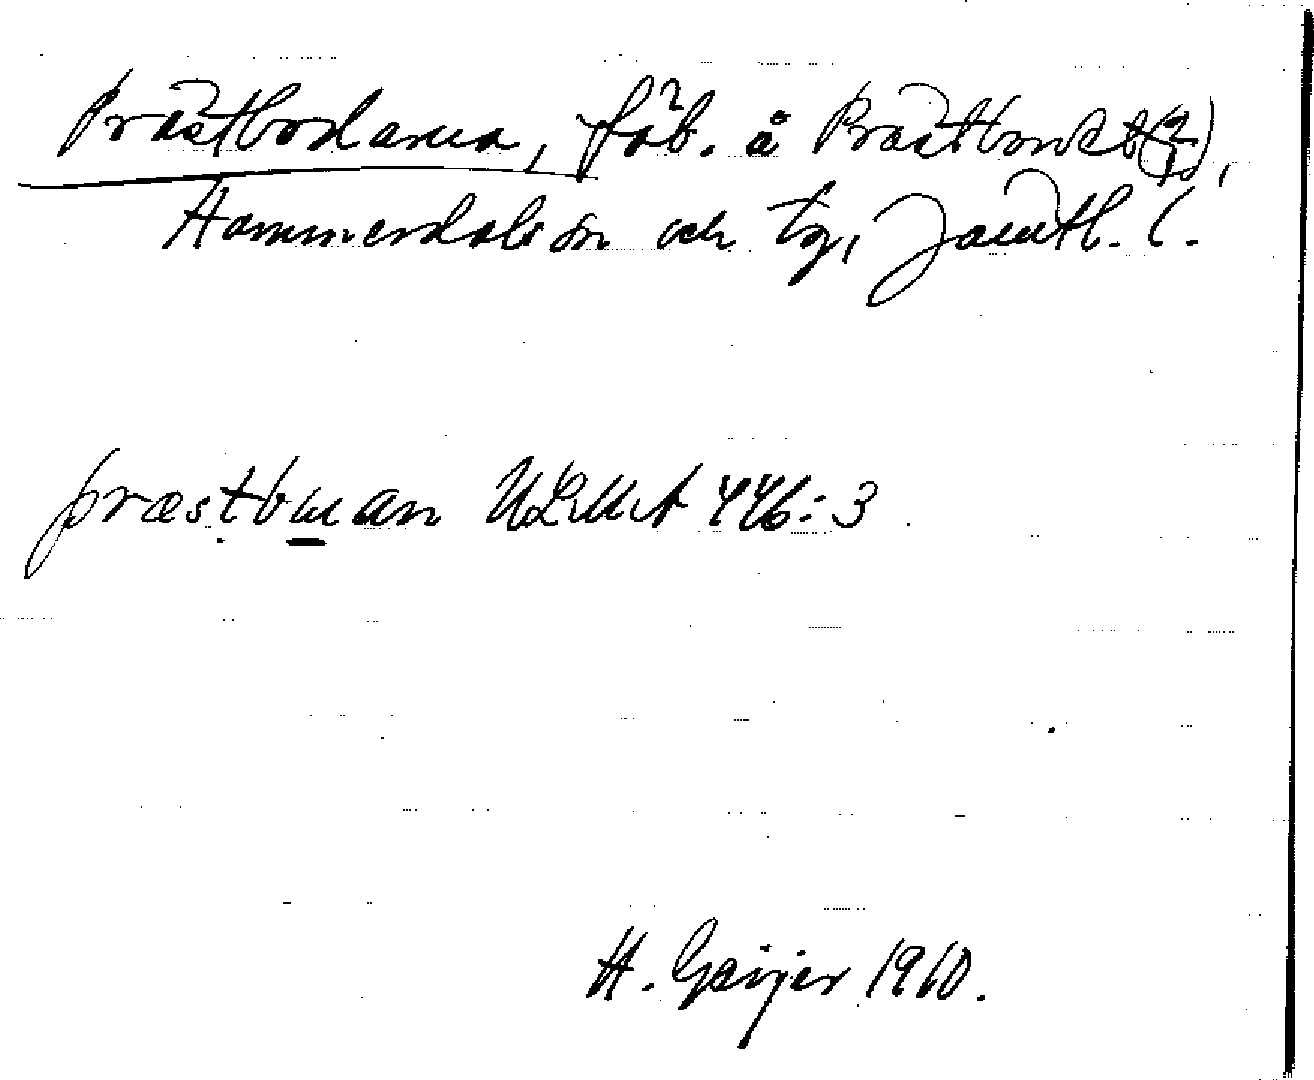 Prästbodarna, fäb. å Prästbordet(?),
Hammerdals sn och tg, Jämtl. l.
præstbuan ULMA 446:3
H. Geijer 1910.